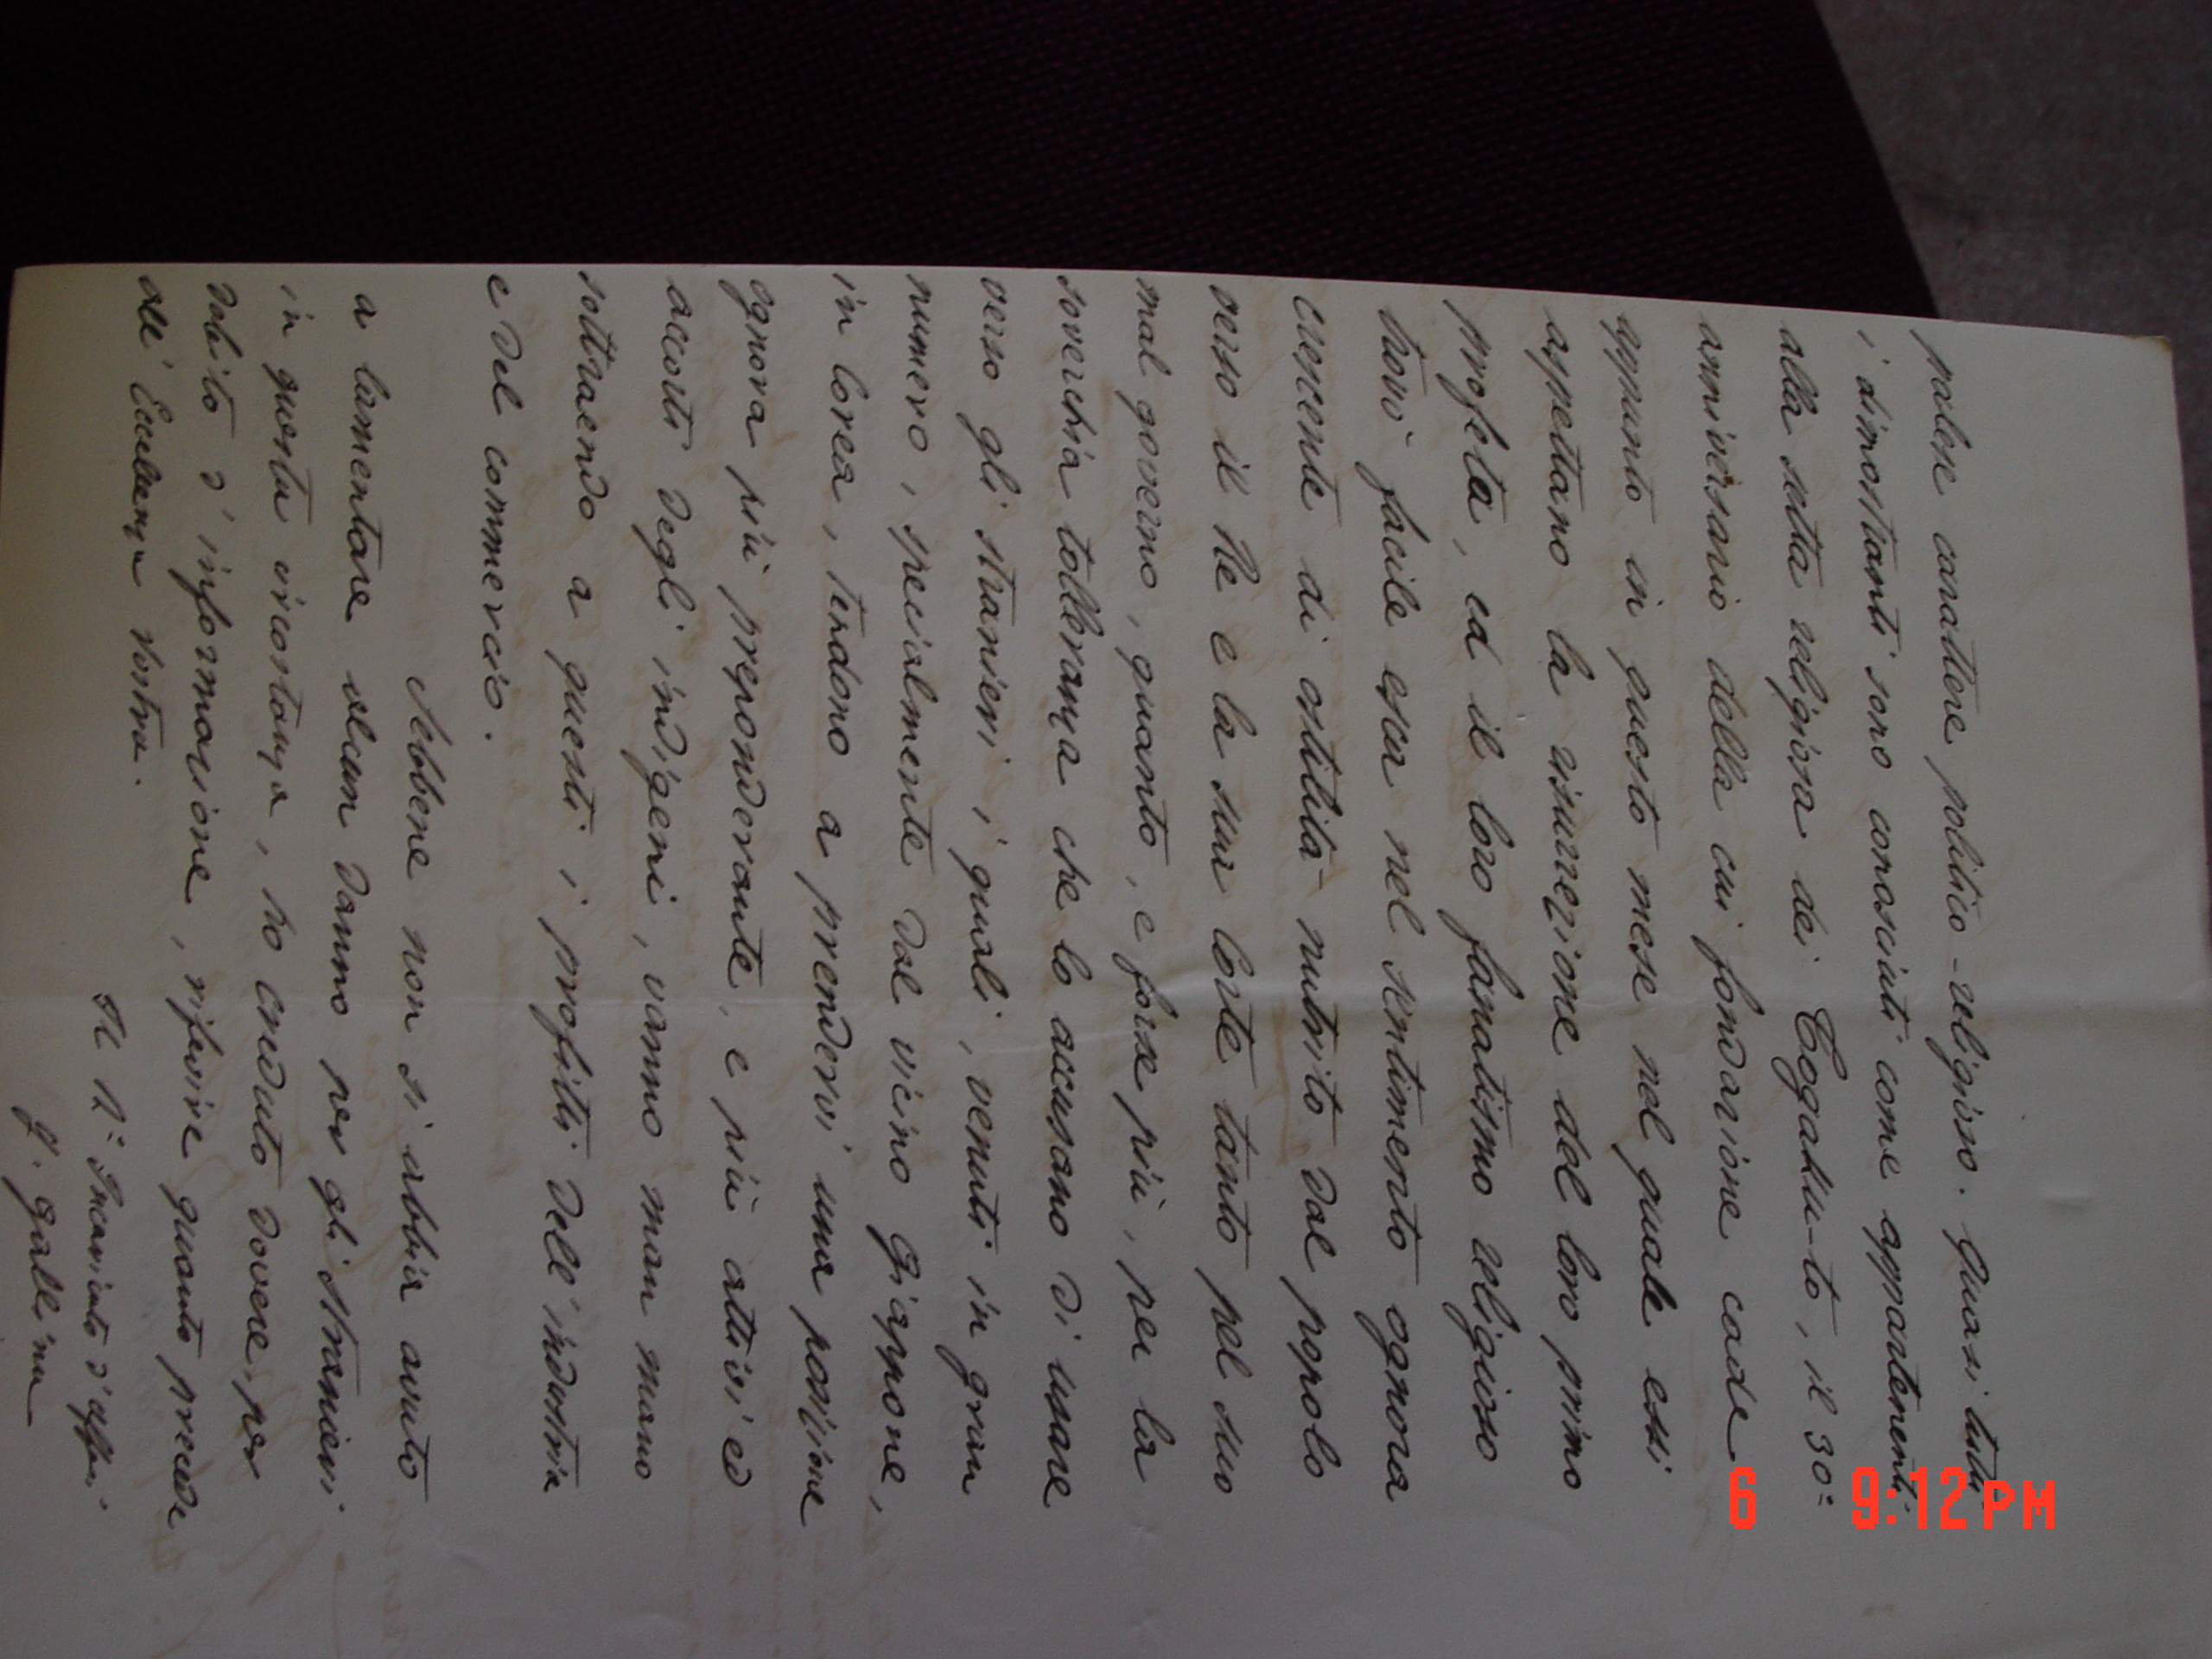 palese carattere politico-religioso. Quasi tutti
i dimostranti sono conosciuti come appartenenti
alla setta religiosa dei Togaku-to, il 30º
anniversario della cui fondazione cade
appunto in questo mese nel quale essi
aspettano la risurrezione del loro primo
profeta, ed il loro fanatismo religioso
trovò facile esca nel sentimento ognora
crescente di ostilità nutrito dal popolo
verso il Re e la sua Corte tanto pel suo
mal governo, quanto, e forse più, per la
soverchia tolleranza che lo accusano di usare
verso gli stranieri, i quali, venuti in gran
numero, specialmente dal vicino Giappone,
in Corea, tendono a prendervi una posizione
ognora più preponderante, e più attivi ed
accorti degli indigeni, vanno man mano
sottraendo a questi i profitti dell'industria
e del commercio.
Sebbene non si abbia avuto
a lamentare alcun danno per gli stranieri
in questa circostanza, ho creduto dovere, per
debito d'informazione, riferire quanto precede
all'Eccellenza Vostra.
Il Rº Incaricato d'affari
G. Gallina
6 9:12PM